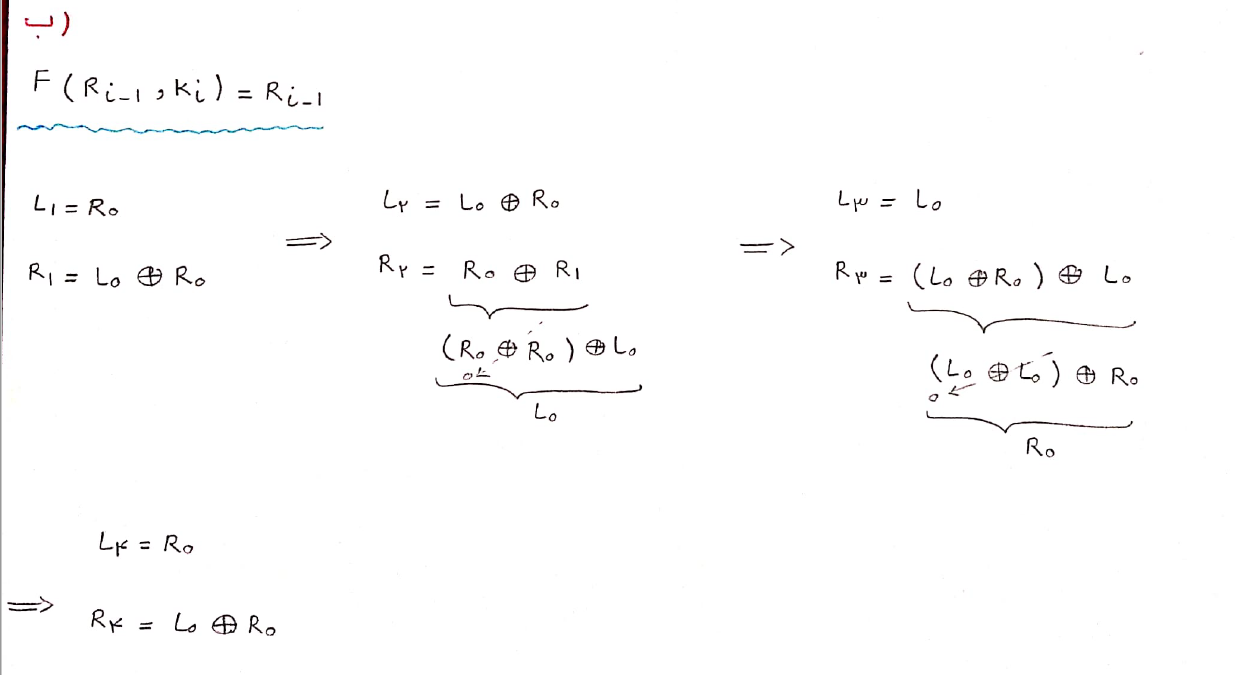 ب)
F(Ri-1, Ki) = Ri-1
L1 = R0
R1 = L0 ⊕ R0
=>
L۲ = L0 ⊕ R0
R۲ = R0 ⊕ R1
(R0 ⊕ R0) ⊕ L0
0
L0
=>
L۳ = L0
R۳ = (L0 ⊕ R0) ⊕ L0
(L0 ⊕ L0) ⊕ R0
0
R0
=>
L۴ = R0
R۴ = L0 ⊕ R0